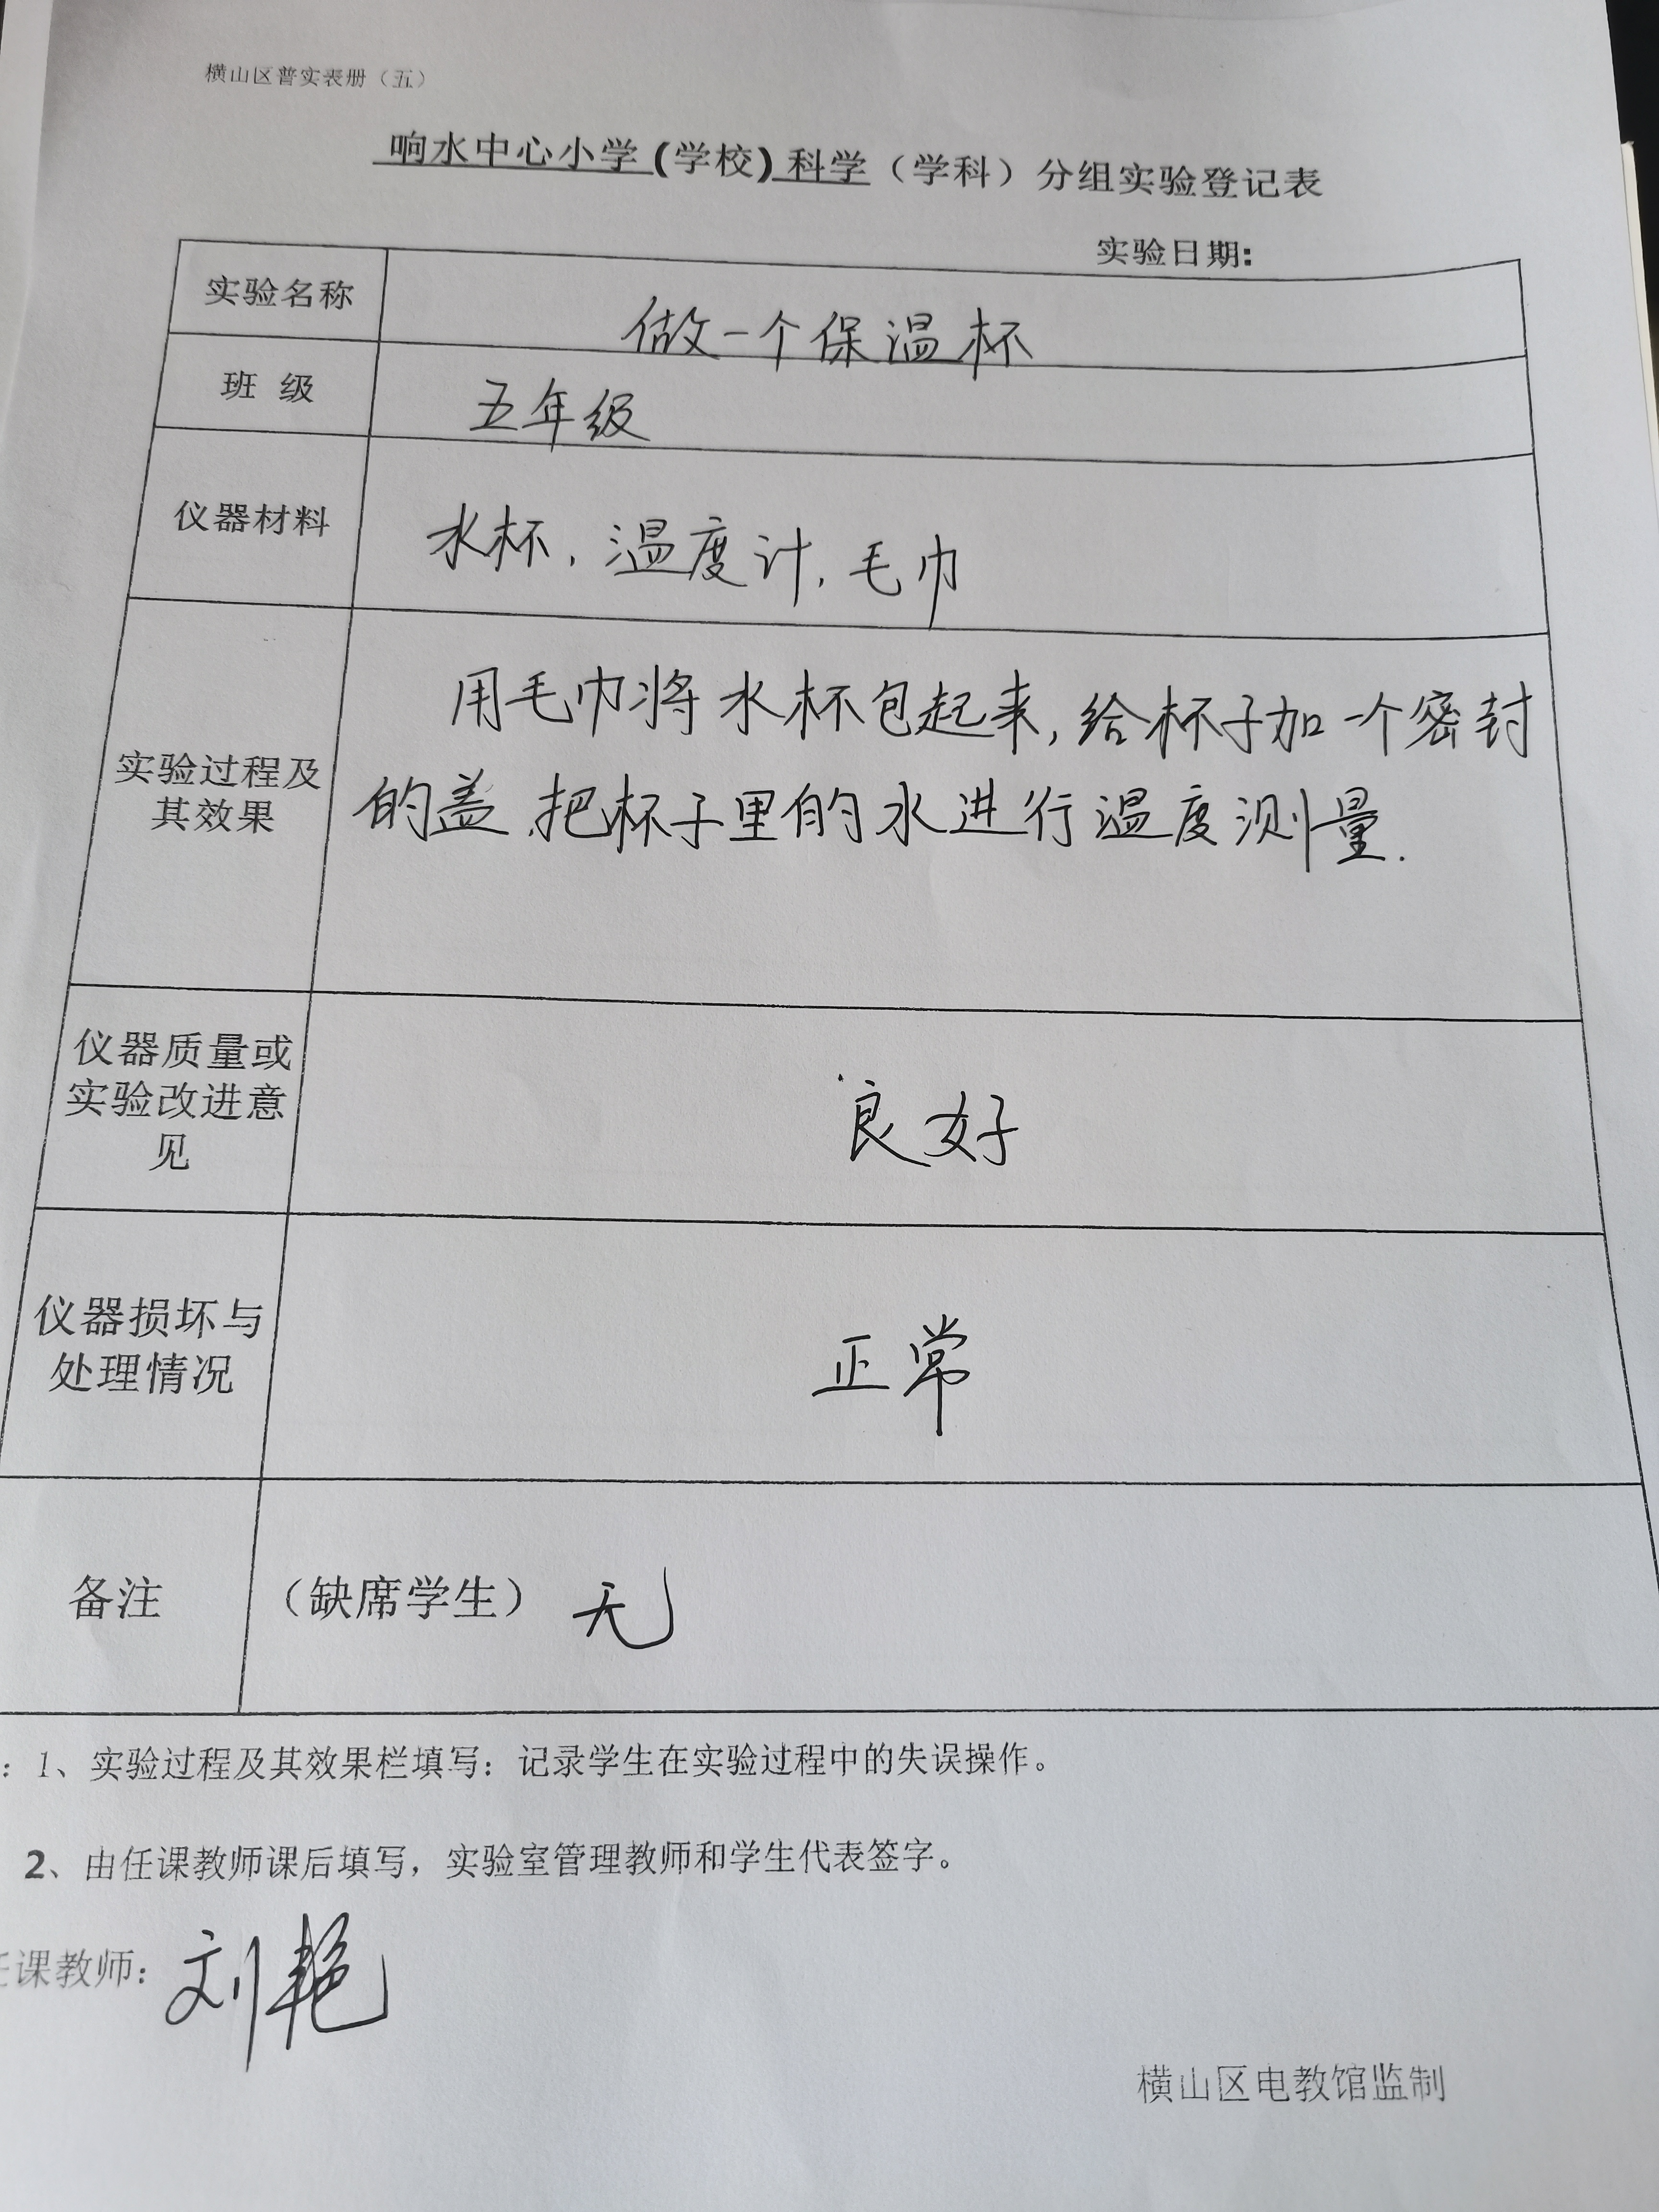 横山区普实表册（五）
响水中心小学(学校)科学（学科）分组实验登记表
实验日期:
实验名称 做一个保温杯
班 级 五年级
仪器材料 水杯，温度计，毛巾
实验过程及
其效果
用毛巾将水杯包起来，给杯子加一个密封
的盖，把杯子里的水进行温度测量.
仪器质量或
实验改进意
见
良好
仪器损坏与
处理情况
正常
备注 （缺席学生） 无
：1、实验过程及其效果栏填写：记录学生在实验过程中的失误操作。
2、由任课教师课后填写，实验室管理教师和学生代表签字。
任课教师：刘艳
横山区电教馆监制